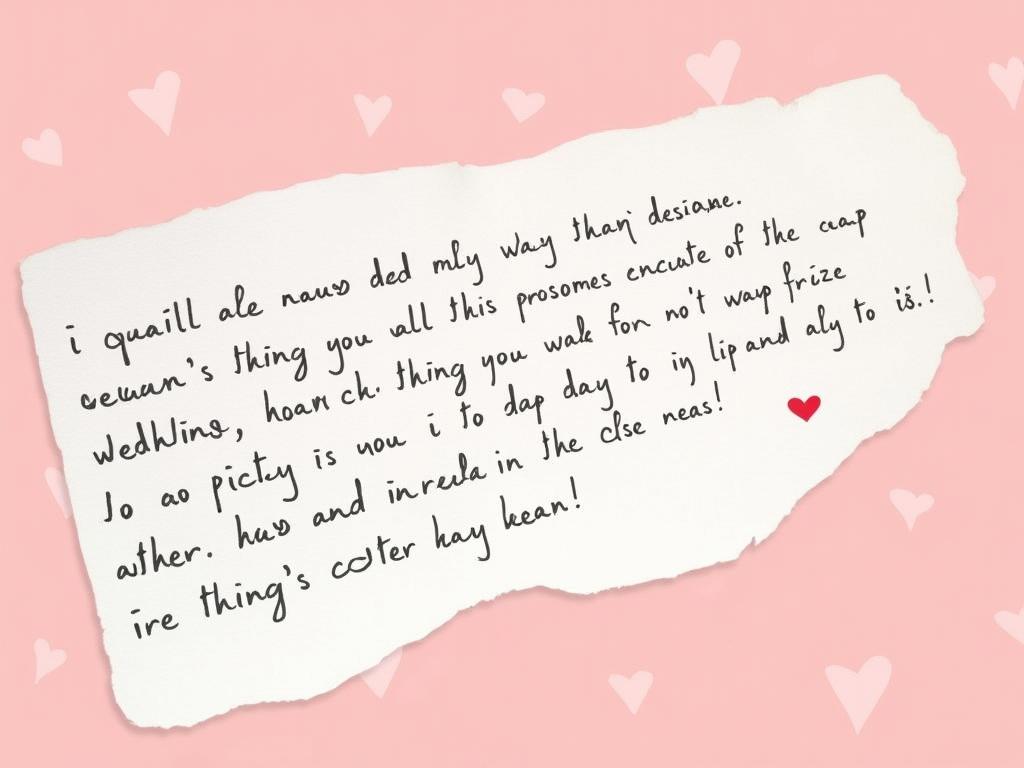 i quaill ale naus ded mly way thanj desiane.
thing you all this prosomes encute of the cuap
Wedhline, hoam ch. thing you walk for no't wayp frize
Jo ao pictey is uou i to dap day to iy lip and aly to is.!
ather. hus and inreela in the clse neas!
ire thing's cdter kay kean!